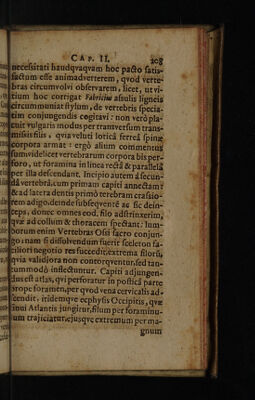 CAP. II. 203
necessitati haudqvaqvam hoc pacto satis-
factum esse animadverterem, qvod verte-
bras circumvolvi observarem, licet, ut vi-
tium hoc corrigat Fabricius asulis ligneis
circummuniat stylum, de vertebris specia-
tim conjungendis cogitavi: non verò pla-
cuit vulgaris modus per transversum trans-
missis filis, qvia veluti lotica ferreâ spinæ
corpora armat: ergò alium commentus
sum, videlicet vertebrarum corpora bis per-
foro, ut foramina in linea rectâ & parallelâ
per illa descendant. Incipio autem à secun-
dâ vertebrâ, cum primam capiti annectam:
& ad latera dentis primò terebram crassio-
rem adigo, deinde subseqventē ac sic dein-
ceps, donec omnes eod. filo adstrinxerim,
qvæ ad collum & thoracem spectant. lum-
borum enim Vertebras Ossi sacro conjun-
go: nam si dissolvendum fuerit sceleton fa-
ciliori negotio res succedit, extrema filorū,
qvia validiora non contorqventur, sed tan-
tummodò inflectuntur. Capiti adjungen-
dus est atlas, qvi perforatur in posticâ parte
prope foramen, per qvod vena cervicalis ad-
scendit, itidemqve ecphysis Occipitis, qvæ
sinui Atlantis jungitur, filum per foraminu-
lum trajiciatur, ejusqve extremum per ma-
gnum